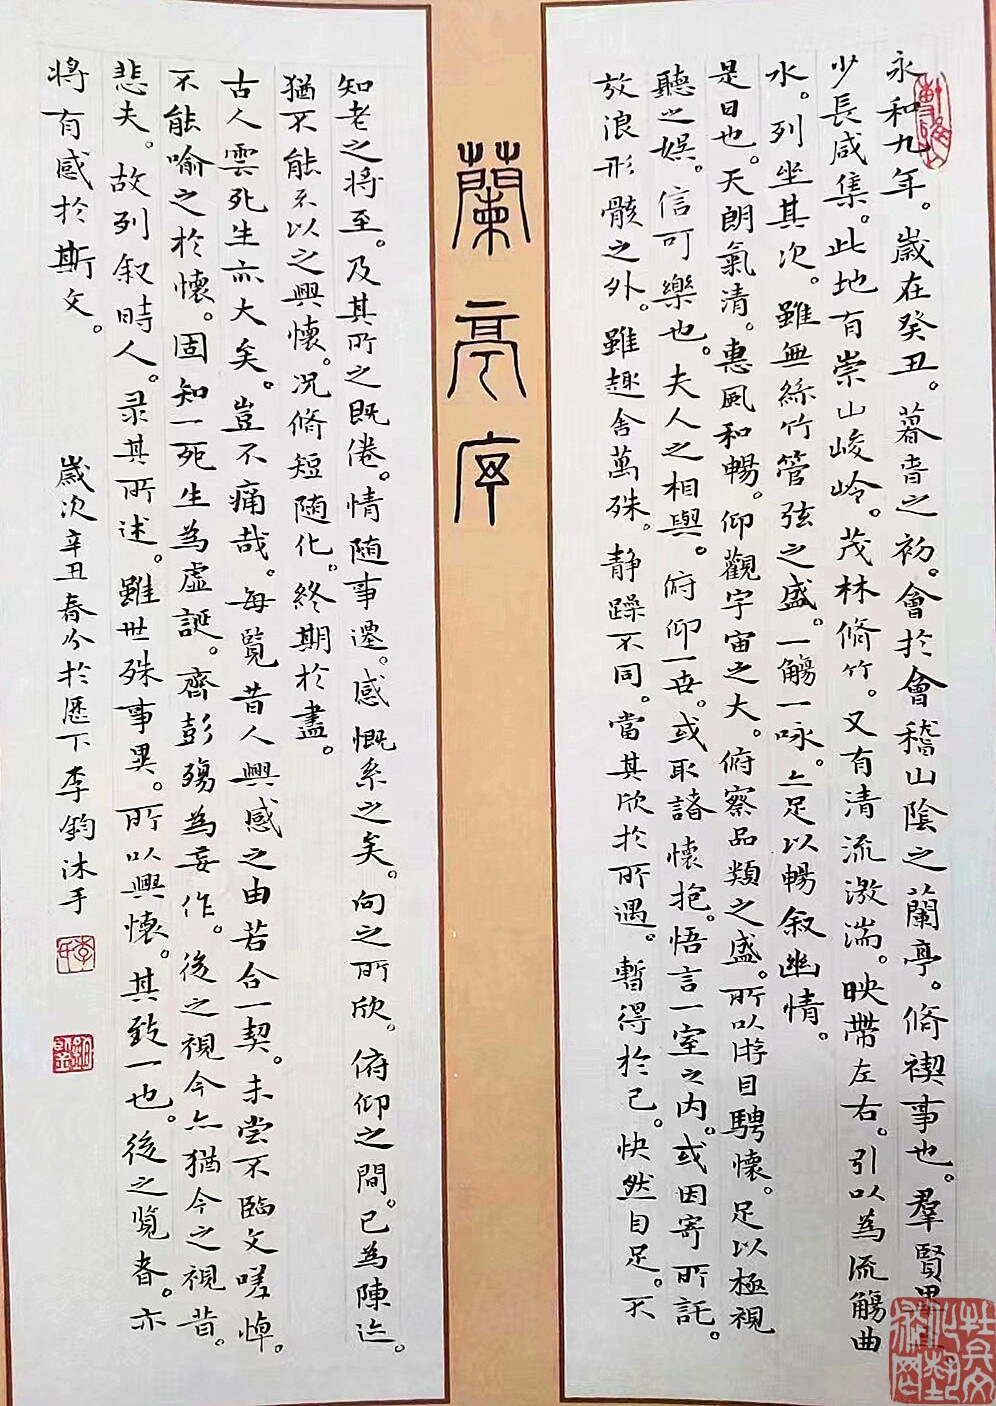 永和九年。歲在癸丑。暮春之初。會於會稽山陰之蘭亭。脩禊事也。羣賢畢至
少長咸集。此地有崇山峻岭。茂林脩竹。又有清流激湍。映帶左右。引以為流觴曲
水。列坐其次。雖無絲竹管弦之盛。一觴一咏。亦足以暢叙幽情。
是日也。天朗氣清。惠風和暢。仰觀宇宙之大。俯察品類之盛。所以游目騁懷。足以極視
聽之娛。信可樂也。夫人之相與。俯仰一世。或取諸懷抱。悟言一室之内。或因寄所託。
放浪形骸之外。雖趣舍萬殊。静躁不同。當其欣於所遇。暫得於己。快然自足。不
蘭亭序
知老之将至。及其所之既倦。情随事遷。感慨系之矣。向之所欣。俯仰之間。已為陳迹。
猶不能不以之興懷。况脩短随化。終期於盡。
古人雲死生亦大矣。豈不痛哉。每覧昔人興感之由若合一契。未嘗不臨文嗟悼。
不能喻之於懷。固知一死生為虛誕。齊彭殤為妄作。後之視今亦猶今之視昔。
悲夫。故列叙時人。录其所述。雖世殊事異。所以興懷。其致一也。後之览者。亦
将有感於斯文。
歲次辛丑春分於歷下李鈞沐手